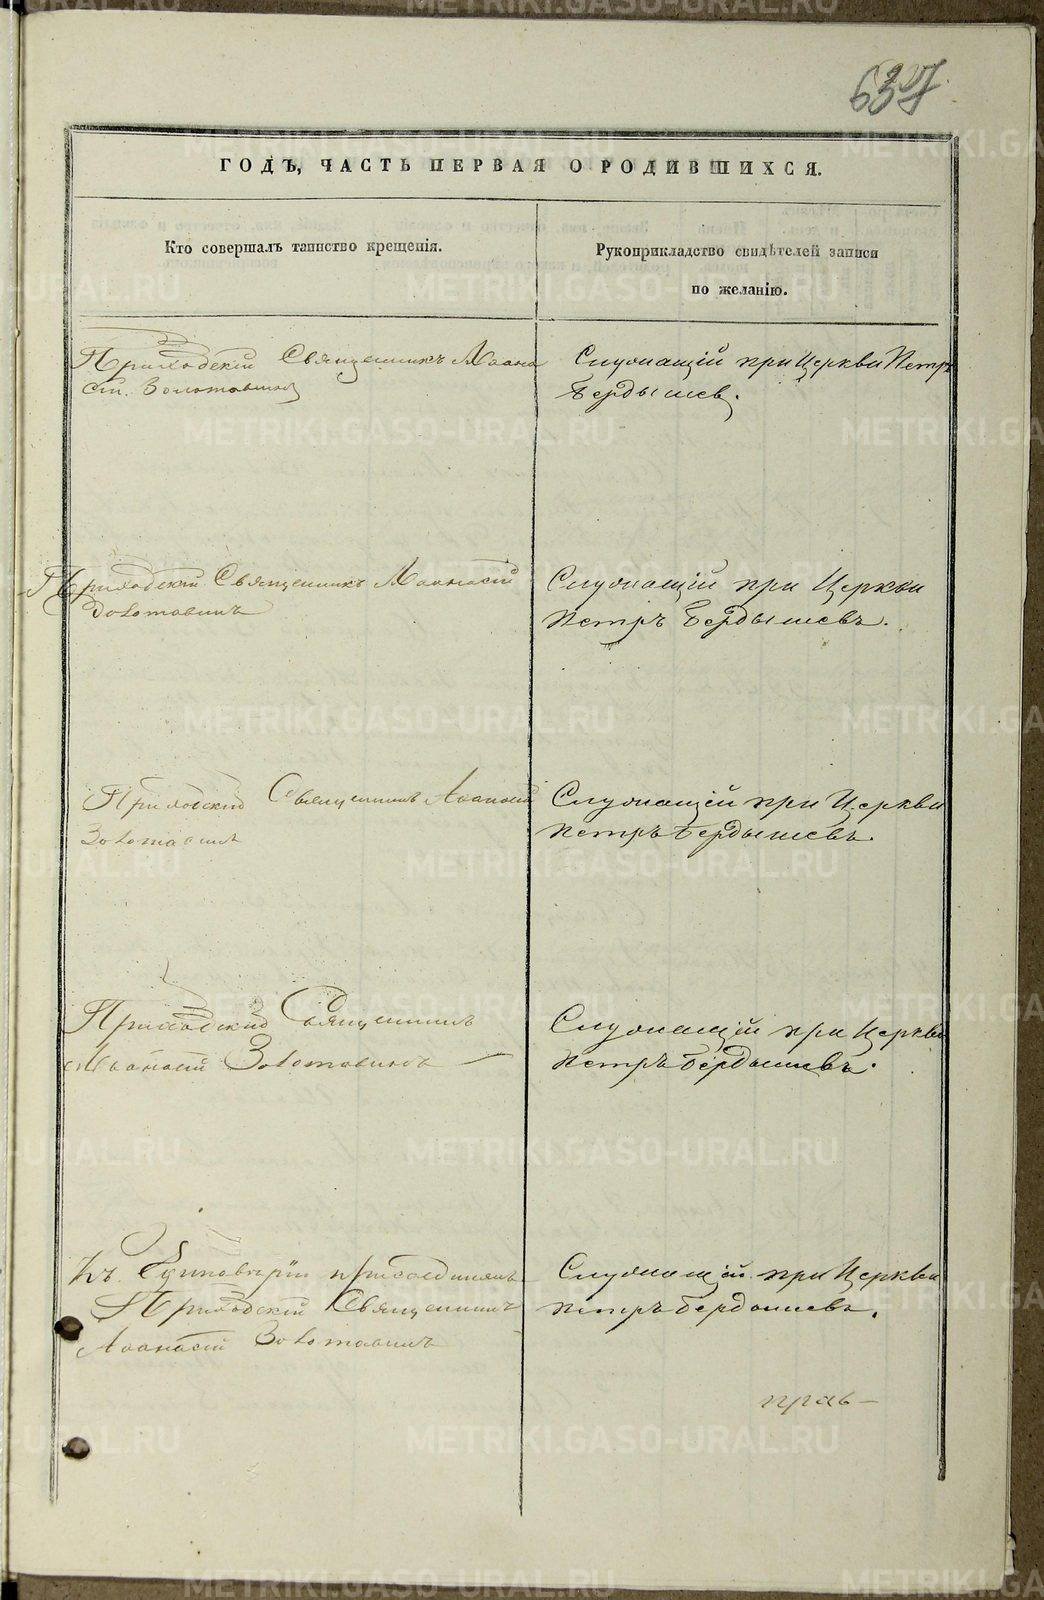 637
ГОДЪ, ЧАСТЬ ПЕРВАЯ О РОДИВШИХСЯ.
Кто совершалъ таинство крещенія.
Рукоприкладство свидѣтелей записи
по желанію.
Приходскій Священникъ Аѳана
сій Золотавинъ
Служащій при Церкви Петръ
Бердышев.
Приходскій Священникъ Аѳанасій
Золотавинъ
Служащій при Церкви
Петръ Бердышевъ.
Приходскій Священникъ Аѳанасій
Золотавинъ
Служащій при Церкви
Петръ Бердышевъ.
Приходскій Священникъ
Аѳанасій Золотавинъ
Служащій при Церкви
Петръ Бердышевъ.
Къ Единовѣрію присоединялъ
Приходскій Священникъ
Аѳанасій Золотавинъ
Служащій при Церкви
Петръ Бердышевъ.
прав-
METRIKI.GASO-URAL.RU